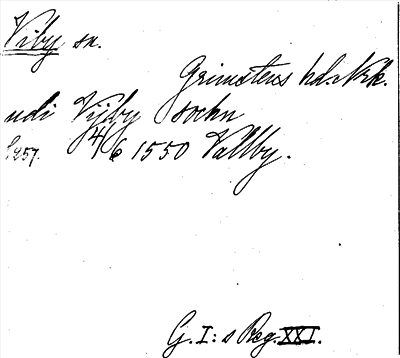 Viby sn.
Grimstens hd. Nrk.
udi Vijby sochn
s. 257. 4/6 1550 Vallby.
G. I:s Reg. XXI.